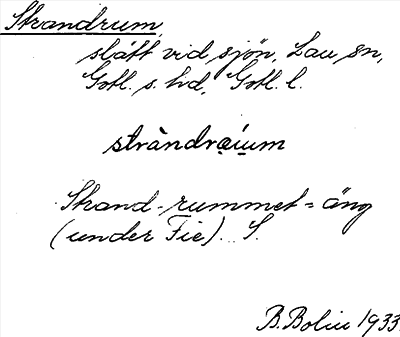 Strandrum,
slått vid sjön, Lau sn,
Gotl. s. hd, Gotl. l.
stràndra̤i̤um
Strand-rummet = äng
(under Fie). S.
B. Bolin 1933.